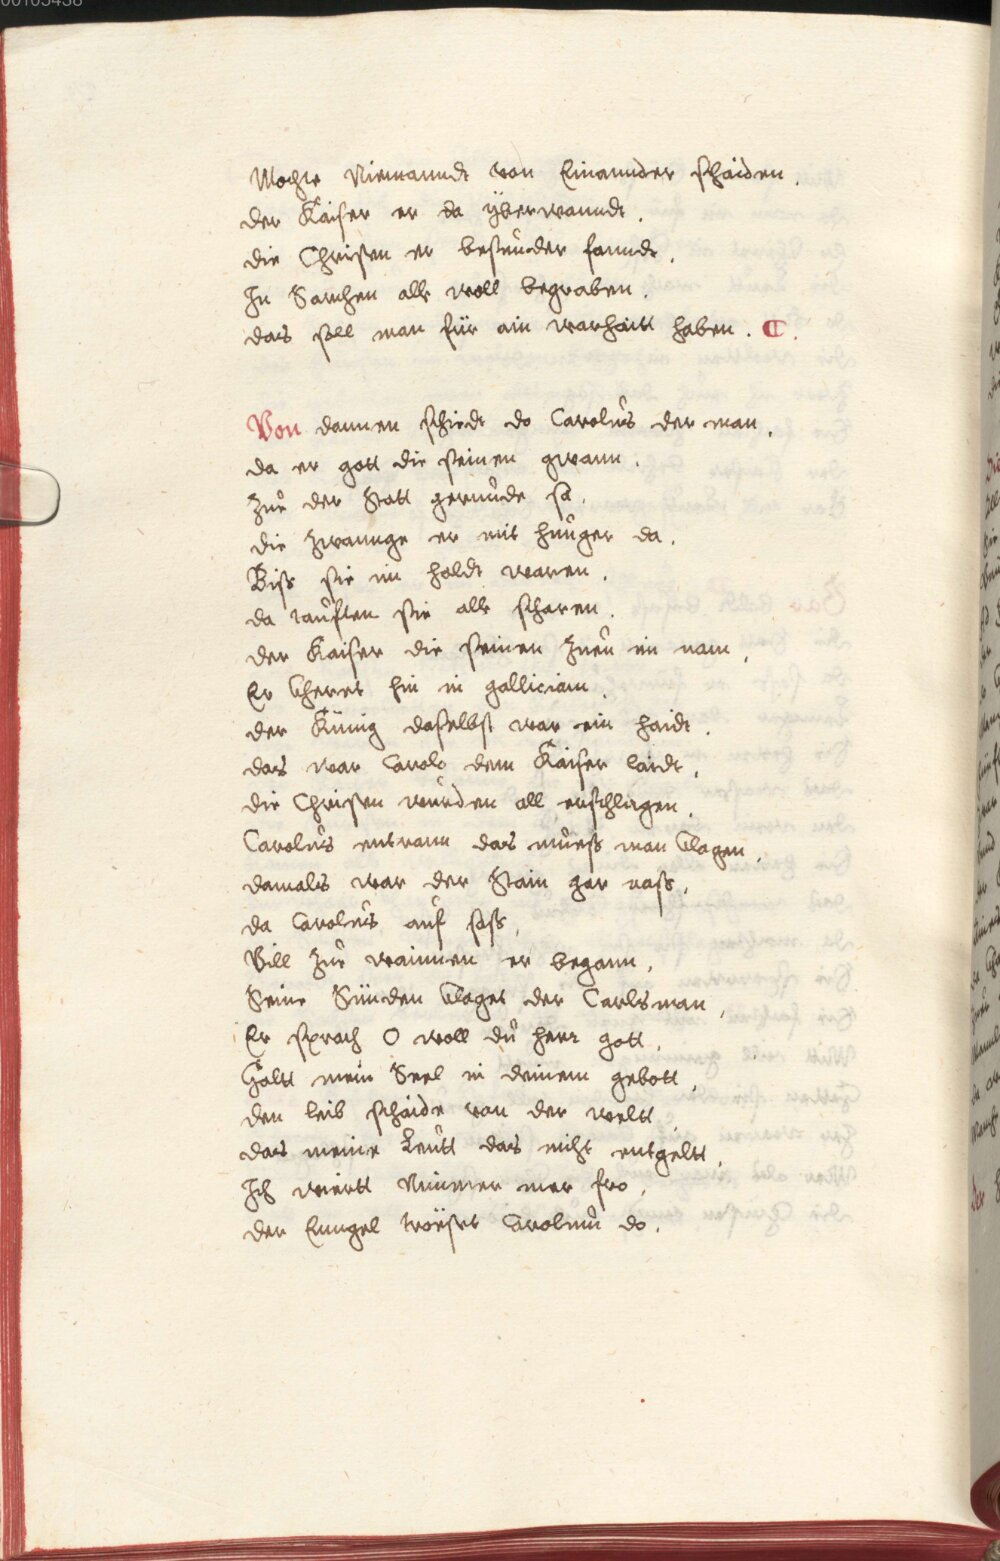 00105438
Mochte Niemanndt von Einannder schaiden.
der Kaiser er da yberwanndt.
die Christen er besunder fanndt.
In Sarchen alle woll begraben.
das soll man für ain warhaitt haben. C.
Von dannen schiedt do Carolus der man.
da er gott die seinen gwann.
Zue der Statt gerunde so.
die zwannge er mit hunger da.
Biss sie im holdt waren.
da taufften sie alle scharen.
der Kaiser die seinen zue im nam.
Er kheret hin in galliciam.
der Künig daselbst war ein haidt.
das war Carolo dem Kaiser laidt.
die Christen wurden all erschlagen.
Carolus entrann das muess man klagen.
damals war der Stain gar nass.
da Carolus auf sass.
Vill zue wainnen er begann.
Seine Sünden klaget der Carlsman.
Er sprach O woll du herr gott.
Haltt mein Seel in deinem gebott.
den leib schaide von der weltt.
das meine Leutt das nicht entgeltt.
Ich wiertt Nimmer mer fro.
der Enngel tröestet Carolum do.